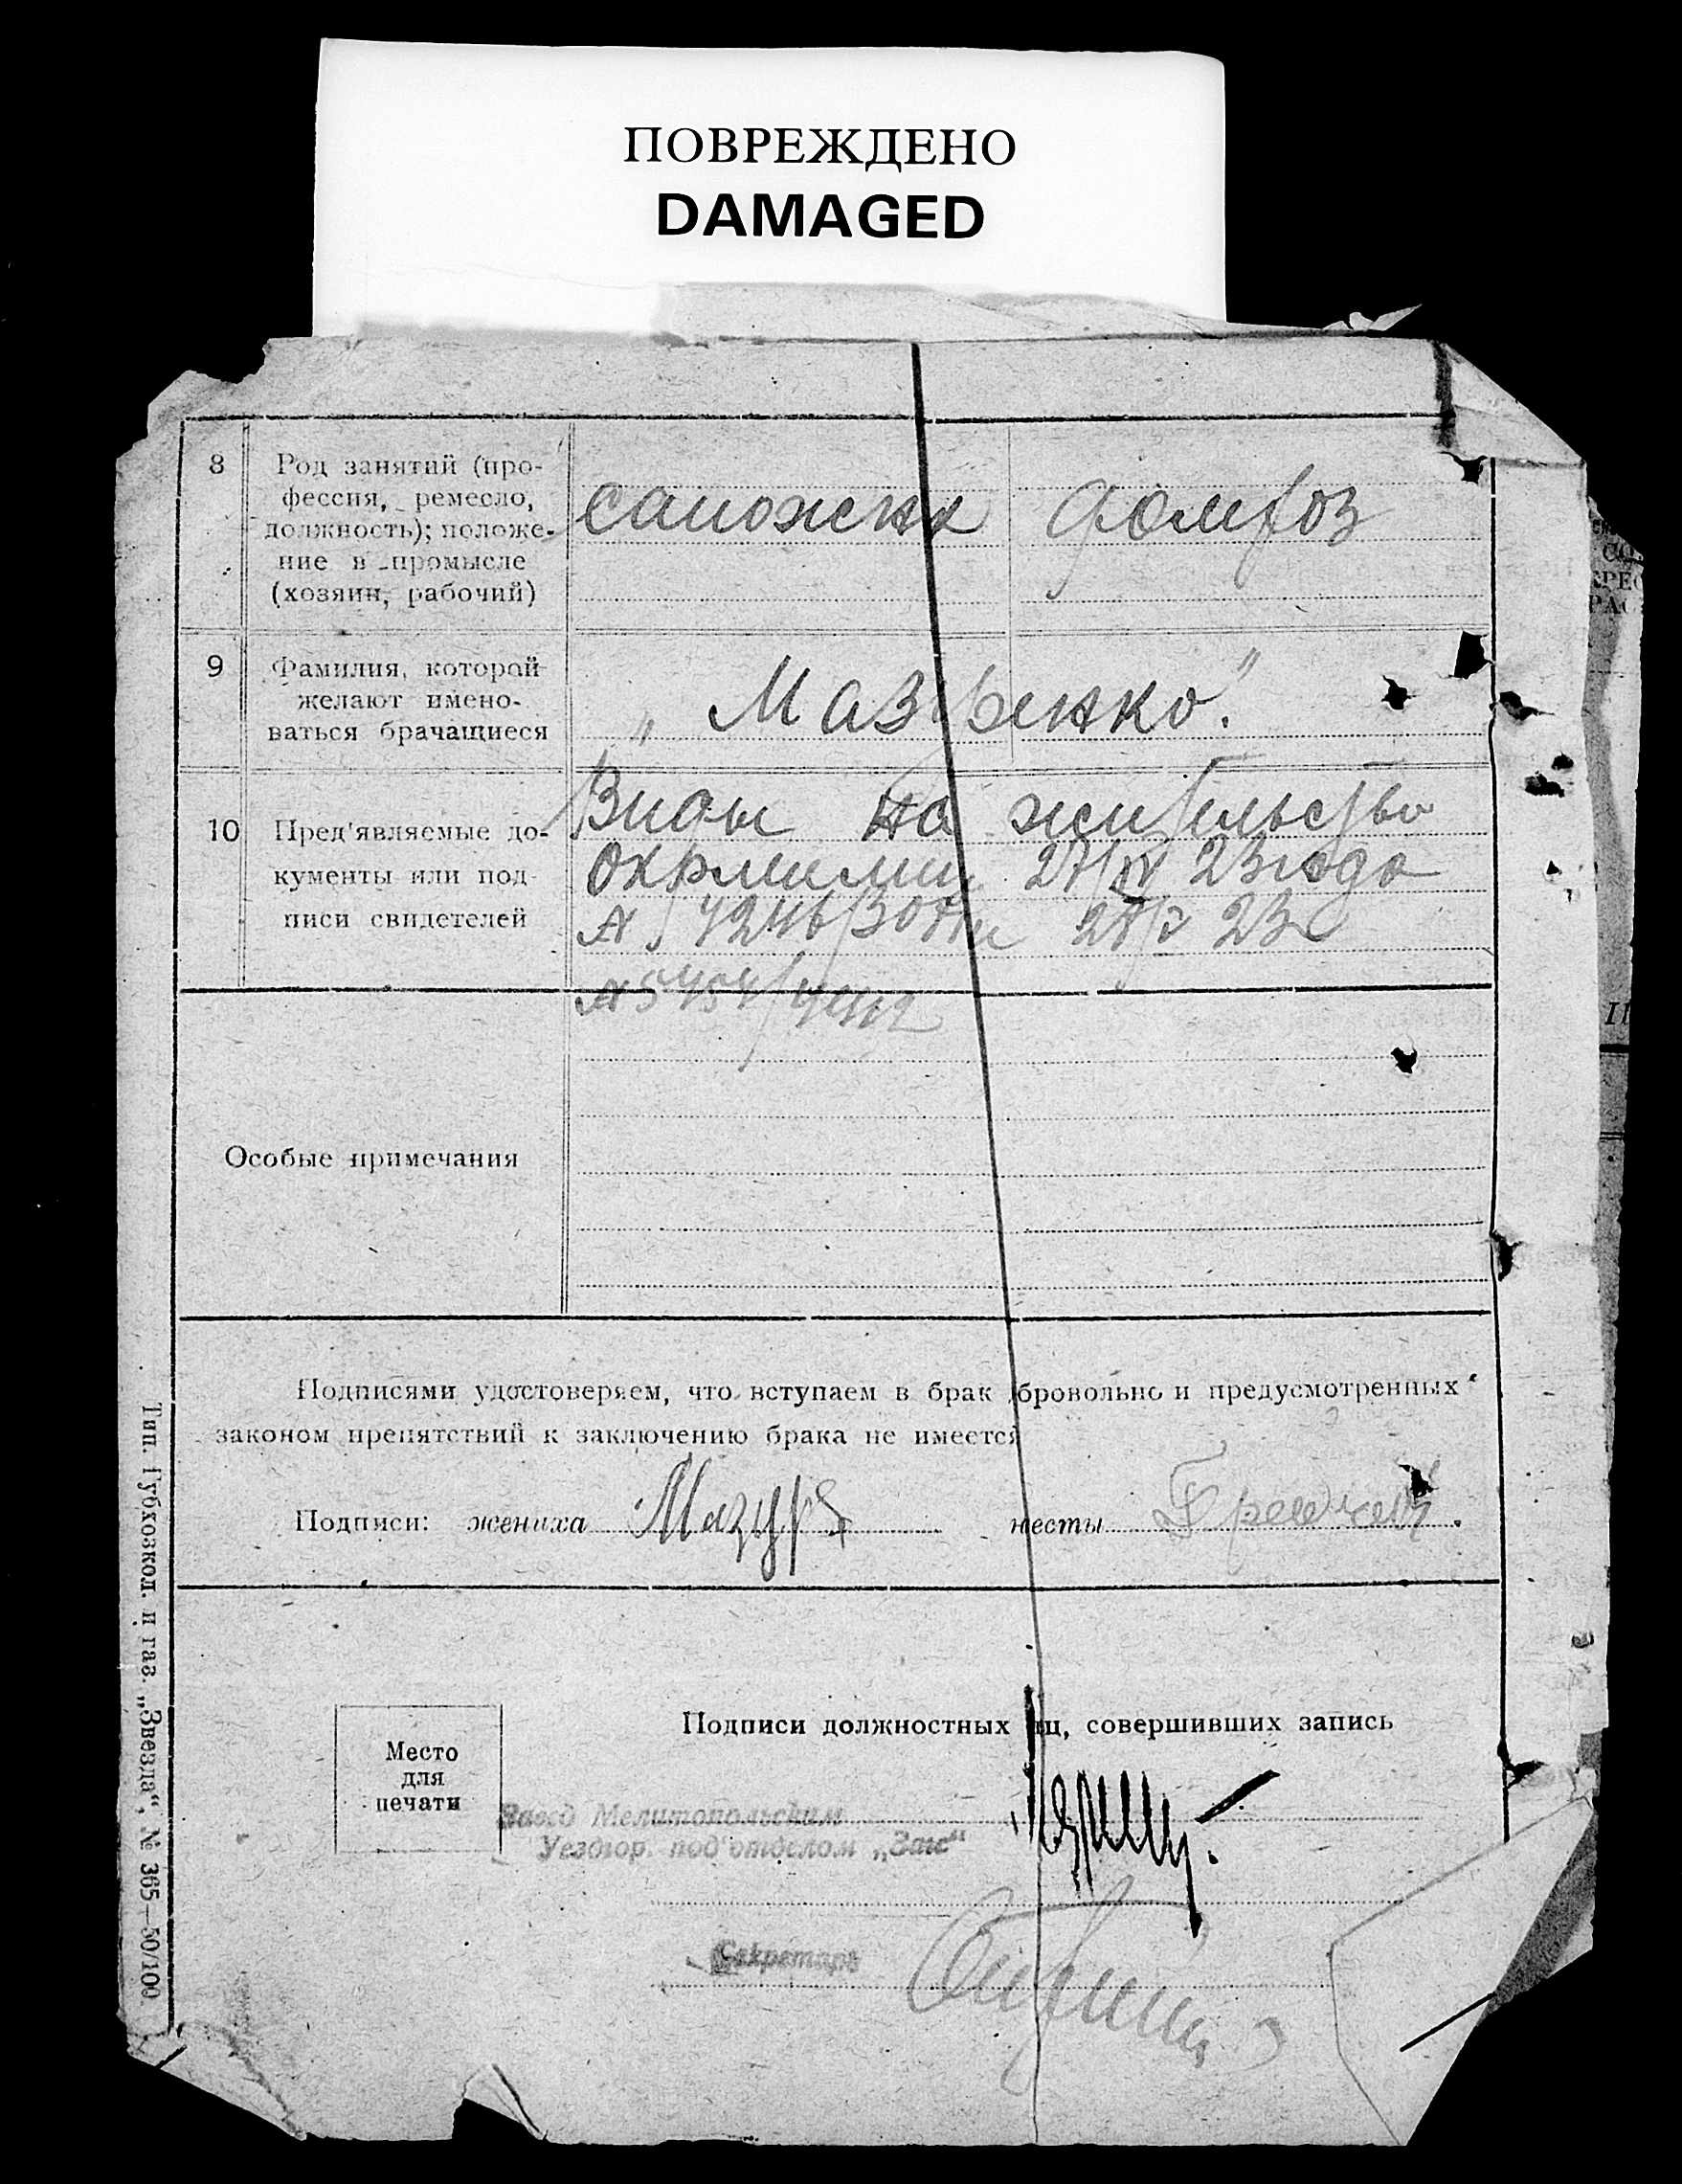 ПОВРЕЖДЕНО
DAMAGED
8 Род занятий (про-
фессия, ремесло,
должность); положе-
ние в промысле
(хозяин, рабочий)
сапожник домхоз
9 Фамилия, которой
желают имено-
ваться брачащиеся
„Мазуренко".
10 Пред'являемые до-
кументы или под-
писи свидетелей
Виды на жительство
27/IV 23 года
23
Особые примечания
Подписями удостоверяем, что вступаем в брак бровольно и предусмотренных
законом препятствий к заключению брака не имеется
Подписи: жениха Мазур несты
Место
для
печати
Подписи должностных иц, совершивших запись
Завед Мелитопольским
Уездгор. под'отделом „Загс"
Секретарь
Тип. Губкозкол. и газ. „Звезда", № 365—50/100.